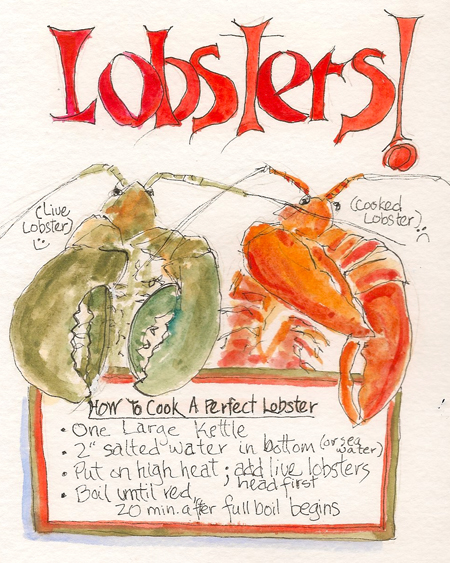 Lobsters!
(Live
Lobster)
(Cooked
Lobster)
How To Cook A Perfect Lobster
• One Large Kettle
• 2" salted water in bottom (or sea
water)
• Put on high heat; add live lobsters
head first
• Boil until red,
20 min. after full boil begins